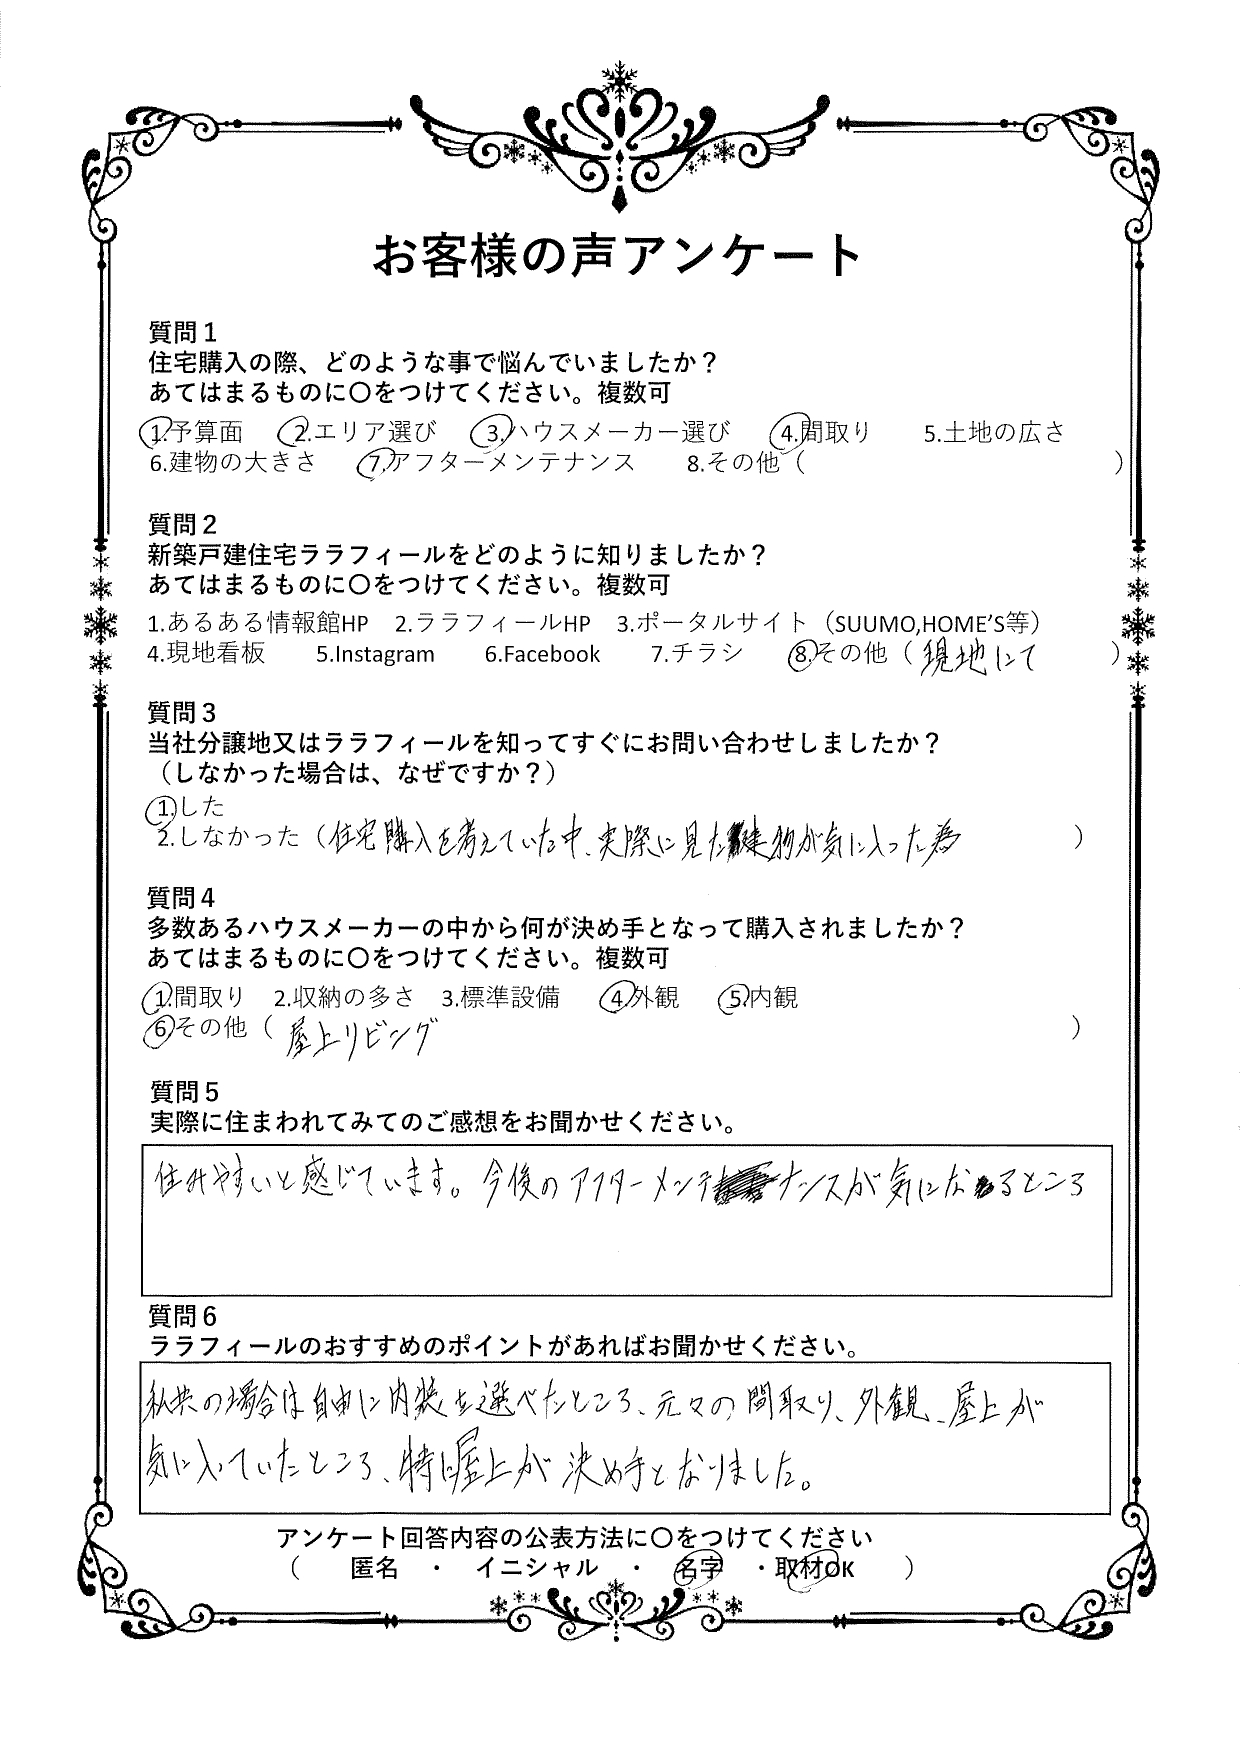 お客様の声アンケート
質問1
住宅購入の際、どのような事で悩んでいましたか？
あてはまるものに〇をつけてください。複数可
1.予算面　2.エリア選び　3.ハウスメーカー選び　4.間取り　5.土地の広さ
6.建物の大きさ　7.アフターメンテナンス　8.その他（　）
質問2
新築戸建住宅ララフィールをどのように知りましたか？
あてはまるものに〇をつけてください。複数可
1.あるある情報館HP　2.ララフィールHP　3.ポータルサイト（SUUMO,HOME'S等）
4.現地看板　5.Instagram　6.Facebook　7.チラシ　8.その他（現地にて）
質問3
当社分譲地又はララフィールを知ってすぐにお問い合わせしましたか？
（しなかった場合は、なぜですか？）
1.した
2.しなかった（住宅購入を考えていた中、実際に見た建物が気に入った為）
質問4
多数あるハウスメーカーの中から何が決め手となって購入されましたか？
あてはまるものに〇をつけてください。複数可
1.間取り　2.収納の多さ　3.標準設備　4.外観　5.内観
6.その他（屋上リビング）
質問5
実際に住まわれてみてのご感想をお聞かせください。
住みやすいと感じています。今後のアフターメンテナンスが気になるところ
質問6
ララフィールのおすすめのポイントがあればお聞かせください。
私共の場合は自由に内装を選べたところ、元々の間取り、外観、屋上が
気に入っていたところ、特に屋上が決め手となりました。
アンケート回答内容の公表方法に〇をつけてください
（　匿名　・　イニシャル　・　名字　・取材OK　）